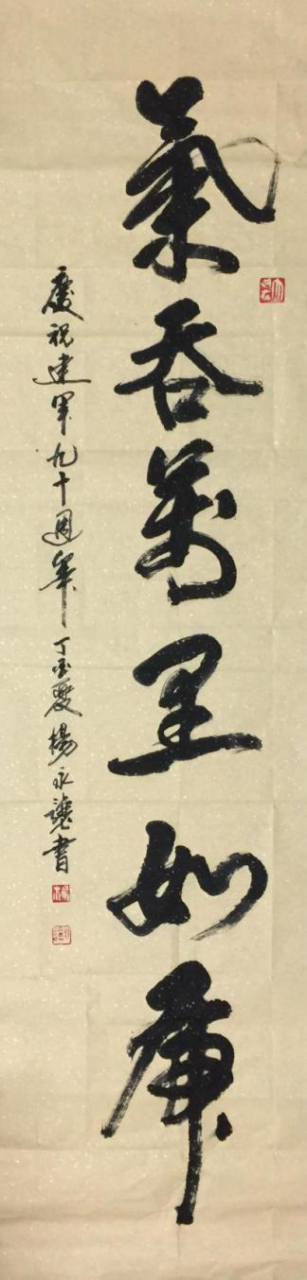 氣吞萬里如虎
慶祝建軍九十週年 丁酉夏 楊永讓書